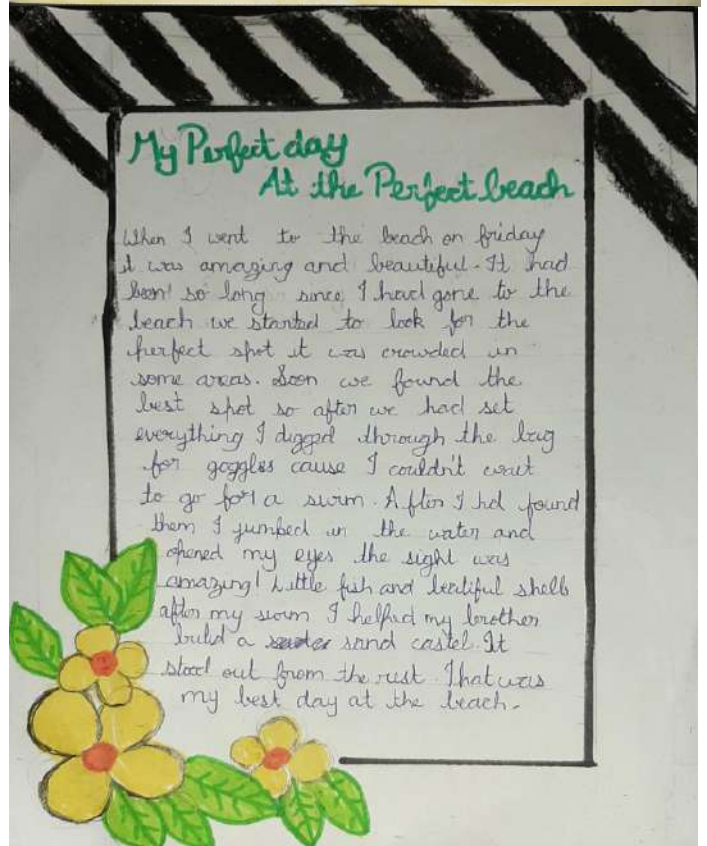 My Perfect day
At the Perfect beach
When I went to the beach on friday
it was amazing and beautiful. It had
been so long since I had gone to the
beach we started to look for the
perfect spot it was crowded in
some areas. Soon we found the
best spot so after we had set
everything I digged through the bag
for goggles cause I couldn't wait
to go for a swim. After I had found
them I jumbed in the water and
opened my eyes the sight was
amazing! Little fish and beatiful shells
after my swim I helped my brother
build a sand castel. It
stood out from the rust. That was
my best day at the beach.